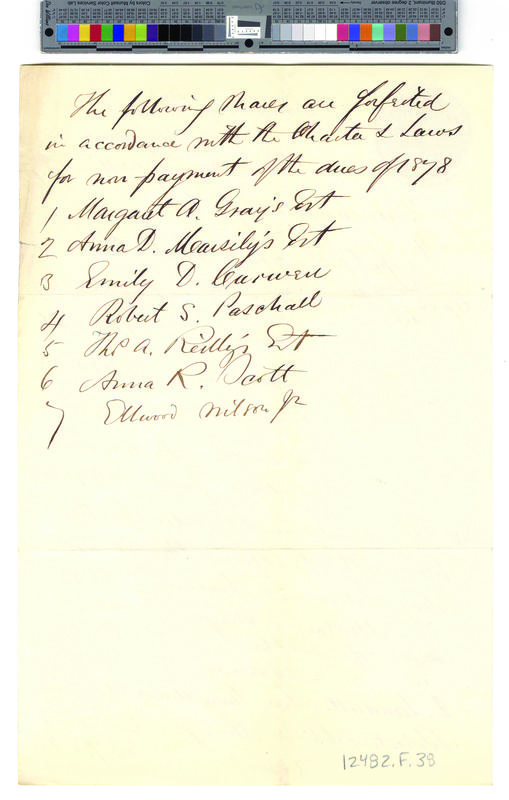 The following shares are forfeited
in accordance with the Charter & Laws
for non-payment of the dues of 1878
1 Margaret A. Gray's Est
2 Anna D. Marsily's Est
3 Emily D. Curwen
4 Robert S. Paschall
5 Tho A. Reilly's Est
6 Anna R. Scott
7 Ellwood Wilson Jr
12482.F.38